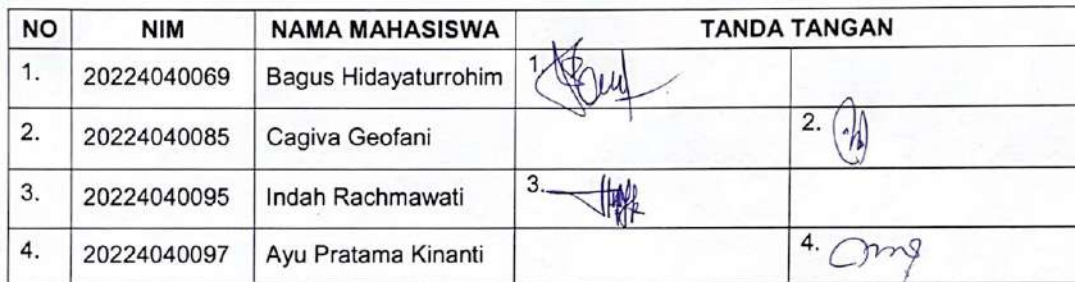 NO NIM NAMA MAHASISWA TANDA TANGAN
1. 20224040069 Bagus Hidayaturrohim 1
2. 20224040085 Cagiva Geofani 2.
3. 20224040095 Indah Rachmawati 3.
4. 20224040097 Ayu Pratama Kinanti 4.